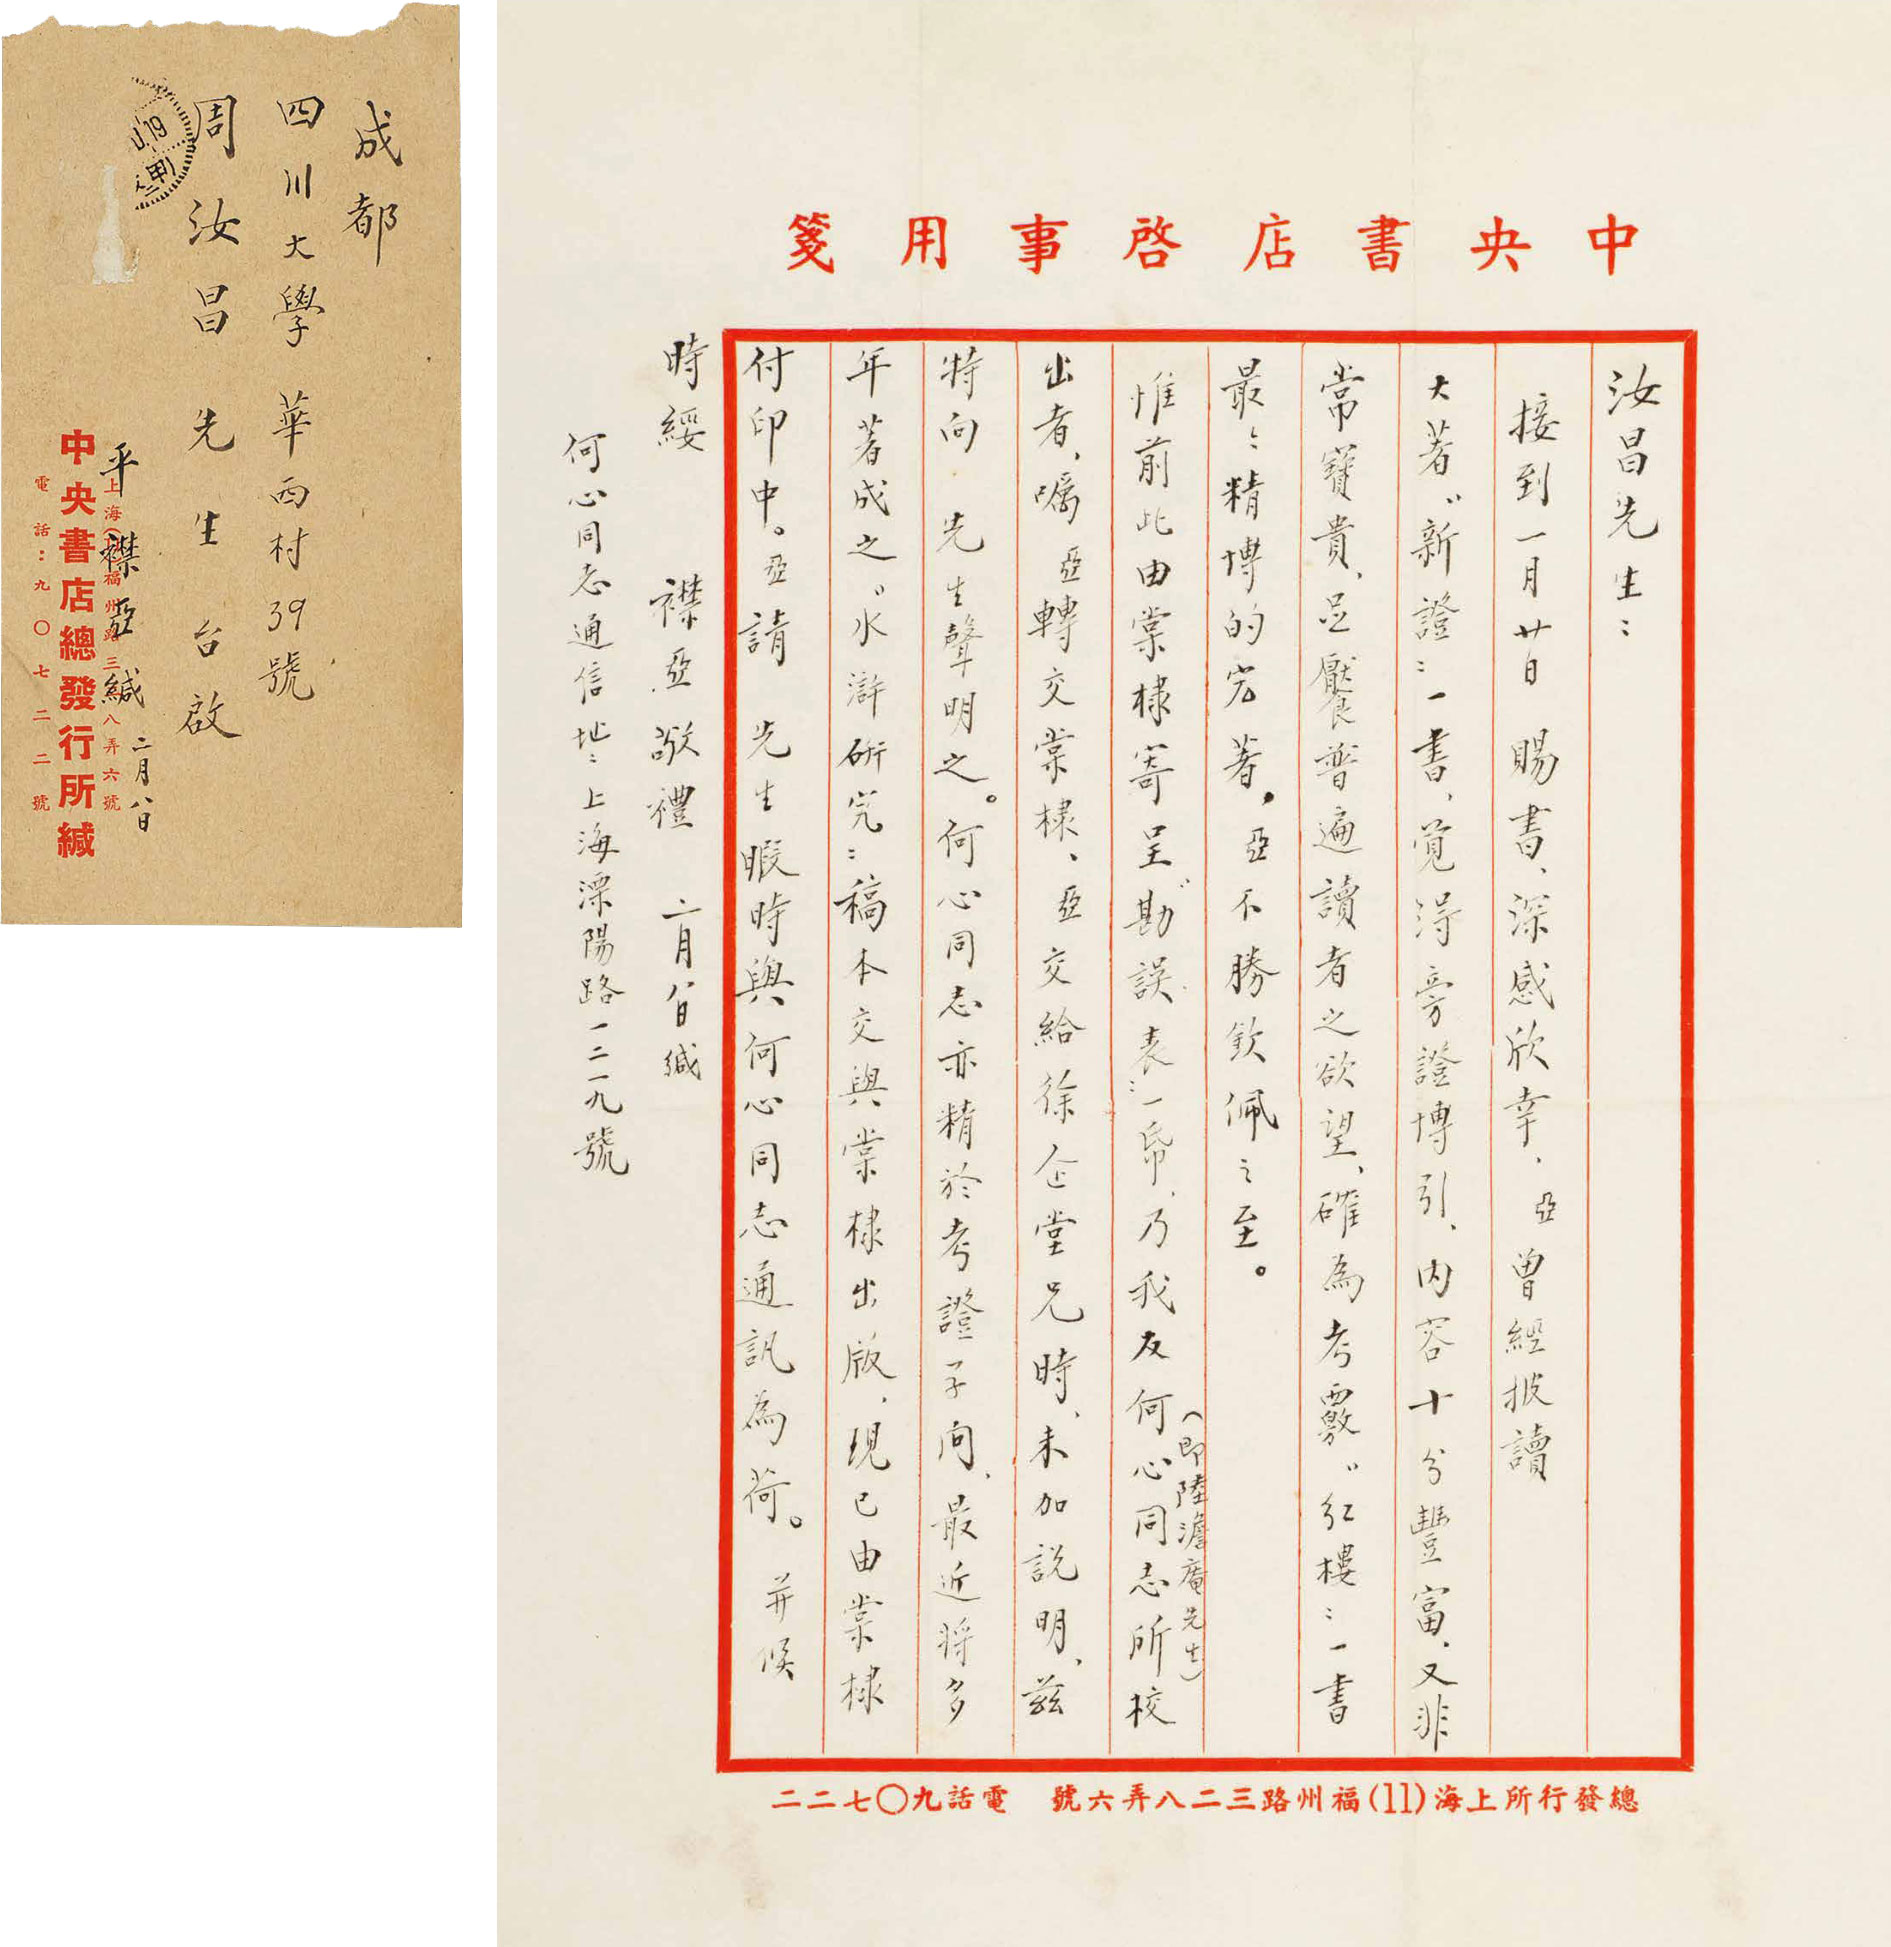 成都
四川大學 華西村39號
周汝昌先生台啟
平襟亞緘 二月八日
上海(11)福州路三二八弄六號
中央書店總發行所緘
電話:九〇七二二號
19
中央書店啓事用箋
汝昌先生:
接到一月廿日 賜書、深感欣幸、亞曾經披讀
大著"新證"一書、覚得旁證博引、内容十分豐富、又非
常寶貴、足饜普遍讀者之欲望、確為考覈"红樓"一書
最最精博的宏著,亞不勝欽佩之至。
惟前此由棠棣寄呈"勘誤表"一帋、乃我友何心同志所校
(即陸澹庵先生)
出者、嘱亞轉交棠棣、亞交給徐企堂兄時、未加説明、茲
特向 先生聲明之。何心同志亦精於考證子向、最近将多
年著成之"水滸研究"稿本交與棠棣出版、現已由棠棣
付印中。亞請 先生暇時與何心同志通訊為荷。并候
時綏 襟亞敬禮 二月八日緘
何心同志通信址:上海溧陽路一二一九號
總發行所上海(11)福州路三二八弄六號 電話九〇七二二